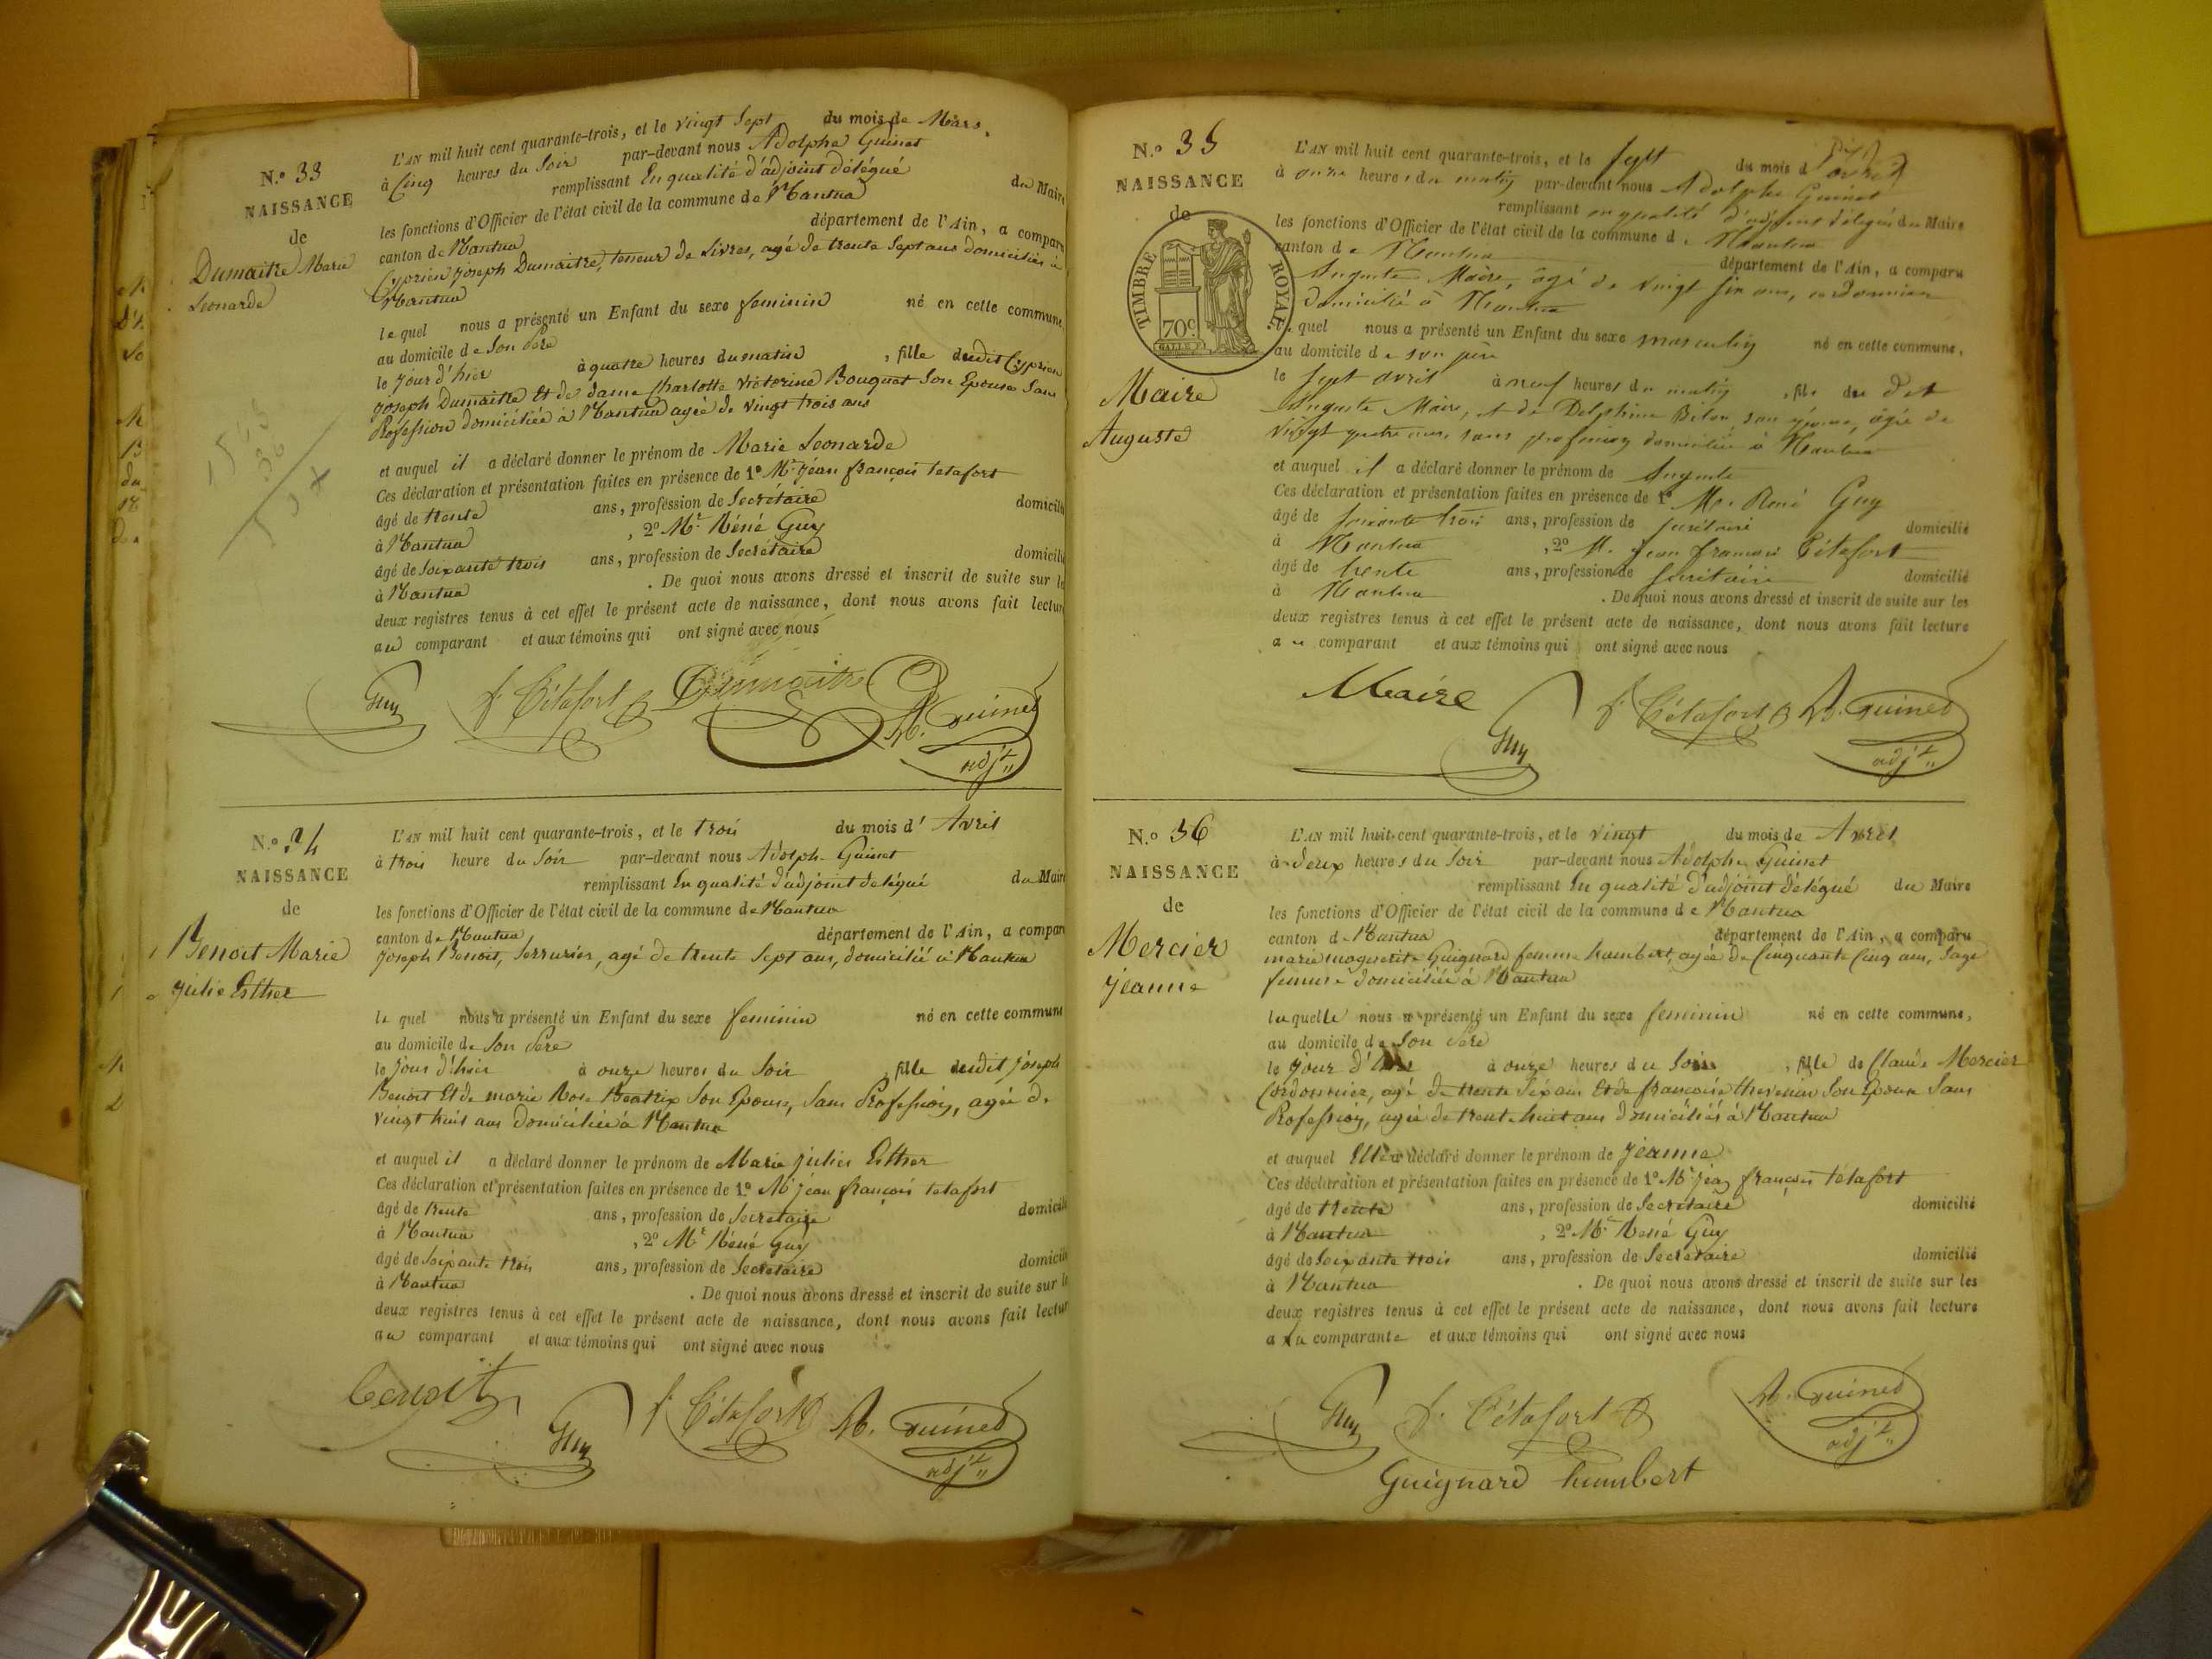 N.º 33
NAISSANCE
de
Dumaitre Marie
Leonarde
L'AN mil huit cent quarante-trois, et le vingt Sept du mois de Mars,
à Cinq heures du Soir par-devant nous Adolphe Guinet
remplissant En qualité d'adjoint délégué du Maire
les fonctions d'Officier de l'état civil de la commune de Nantua
canton de Nantua département de l'Ain, a comparu
Cyprien Joseph Dumaitre, teneur de Livres, agé de trente Sept ans domicilié à
Nantua
le quel nous a présenté un Enfant du sexe feminin né en cette commune,
au domicile de Son Père
le jour d'hier à quatre heures du matin, fille dudit Cyprien
Joseph Dumaitre Et de dame Charlotte Victorine Bouquet Son Epouse Sans
Profession domiciliée à Nantua agée de vingt trois ans
et auquel il a déclaré donner le prénom de Marie Leonarde
Ces déclaration et présentation faites en présence de 1º Mr. Jean françois tetafort
âgé de trente ans, profession de Secrétaire domicilié
à Nantua, 2º Mr. Réné Guy
âgé de Soixante trois ans, profession de Secrétaire domicilié
à Nantua. De quoi nous avons dressé et inscrit de suite sur le
deux registres tenus à cet effet le présent acte de naissance, dont nous avons fait lectur
au comparant et aux témoins qui ont signé avec nous
Guy f. Tétafort Dumaitre A. Guinet
adjt
N.º 34
NAISSANCE
de
Benoit Marie
Julie Esther
L'AN mil huit cent quarante-trois, et le trois du mois d' Avril
à trois heure du Soir par-devant nous Adolphe Guinet
remplissant En qualité d'adjoint delégué du Maire
les fonctions d'Officier de l'état civil de la commune de Nantua
canton de Nantua département de l'Ain, a compar
Joseph Benoit, Serrurier, agé de trente Sept ans, domicilié à Nantua
le quel nous a présenté un Enfant du sexe feminin né en cette commune
au domicile de Son Père
le jour d'hier à onze heures du Soir, fille dudit Joseph
Benoit Et de marie Rose Beatrix Son Epouse, Sans Profession, agée de
vingt huit ans domiciliée à Nantua
et auquel il a déclaré donner le prénom de Marie Julie Esther
Ces déclaration et présentation faites en présence de 1º Mr Jean françois tetafort
âgé de trente ans, profession de Secretaire domicilié
à Nantua, 2º Mr Réné Guy
âgé de Soixante trois ans, profession de Secretaire domicilié
à Nantua. De quoi nous avons dressé et inscrit de suite sur le
deux registres tenus à cet effet le présent acte de naissance, dont nous avons fait lectur
au comparant et aux témoins qui ont signé avec nous
benoit Guy f. Tétafort A. Guinet
adjt
N.º 35
NAISSANCE
de
TIMBRE ROYAL
70 c.
Maire
Auguste
L'AN mil huit cent quarante-trois, et le Sept du mois d'avril
à onze heures du matin par-devant nous Adolphe Guinet
remplissant en qualité d'adjoint délégué du Maire
les fonctions d'Officier de l'état civil de la commune de Nantua
canton de Nantua département de l'Ain, a comparu
Auguste Maire, âgé de vingt six ans, cordonnier
domicilié à Nantua
le quel nous a présenté un Enfant du sexe masculin né en cette commune,
au domicile de son père
le sept avril à neuf heures du matin, fils du dit
Auguste Maire, et de Delphine son épouse, âgée de
vingt quatre ans, sans profession domiciliée à Nantua
et auquel il a déclaré donner le prénom de Auguste
Ces déclaration et présentation faites en présence de 1º M. René Guy
âgé de soixante trois ans, profession de secrétaire domicilié
à Nantua, 2º M. Jean françois Tétafort
âgé de trente ans, profession de secrétaire domicilié
à Nantua. De quoi nous avons dressé et inscrit de suite sur les
deux registres tenus à cet effet le présent acte de naissance, dont nous avons fait lecture
au comparant et aux témoins qui ont signé avec nous
Maire Guy f. Tétafort A. Guinet
adjt
N.º 36
NAISSANCE
de
Mercier
Jeanne
L'AN mil huit cent quarante-trois, et le vingt du mois de Avril
à deux heures du Soir par-devant nous Adolphe Guinet
remplissant En qualité d'adjoint délégué du Maire
les fonctions d'Officier de l'état civil de la commune de Nantua
canton de Nantua département de l'Ain, a comparu
marie marguerite Guignard femme humbert, agée de Cinquante Cinq ans, Sage
femme domiciliée à Nantua
laquelle nous a présenté un Enfant du sexe feminin né en cette commune,
au domicile de Son Père
le jour d'hier à onze heures du Soir, fille de Claude Mercier
Cordonnier, agé de trente Six ans Et de françoise thevenin Son Epouse Sans
Profession, agée de trente huit ans domiciliés à Nantua
et auquel Elle a déclaré donner le prénom de Jeanne
Ces déclaration et présentation faites en présence de 1º Mr Jean françois tétafort
âgé de trente ans, profession de Secrétaire domicilié
à Nantua, 2º Mr René Guy
âgé de Soixante trois ans, profession de Secrétaire domicilié
à Nantua. De quoi nous avons dressé et inscrit de suite sur les
deux registres tenus à cet effet le présent acte de naissance, dont nous avons fait lecture
a La comparante et aux témoins qui ont signé avec nous
Guy f. Tétafort A. Guinet
adjt
Guignard humbert